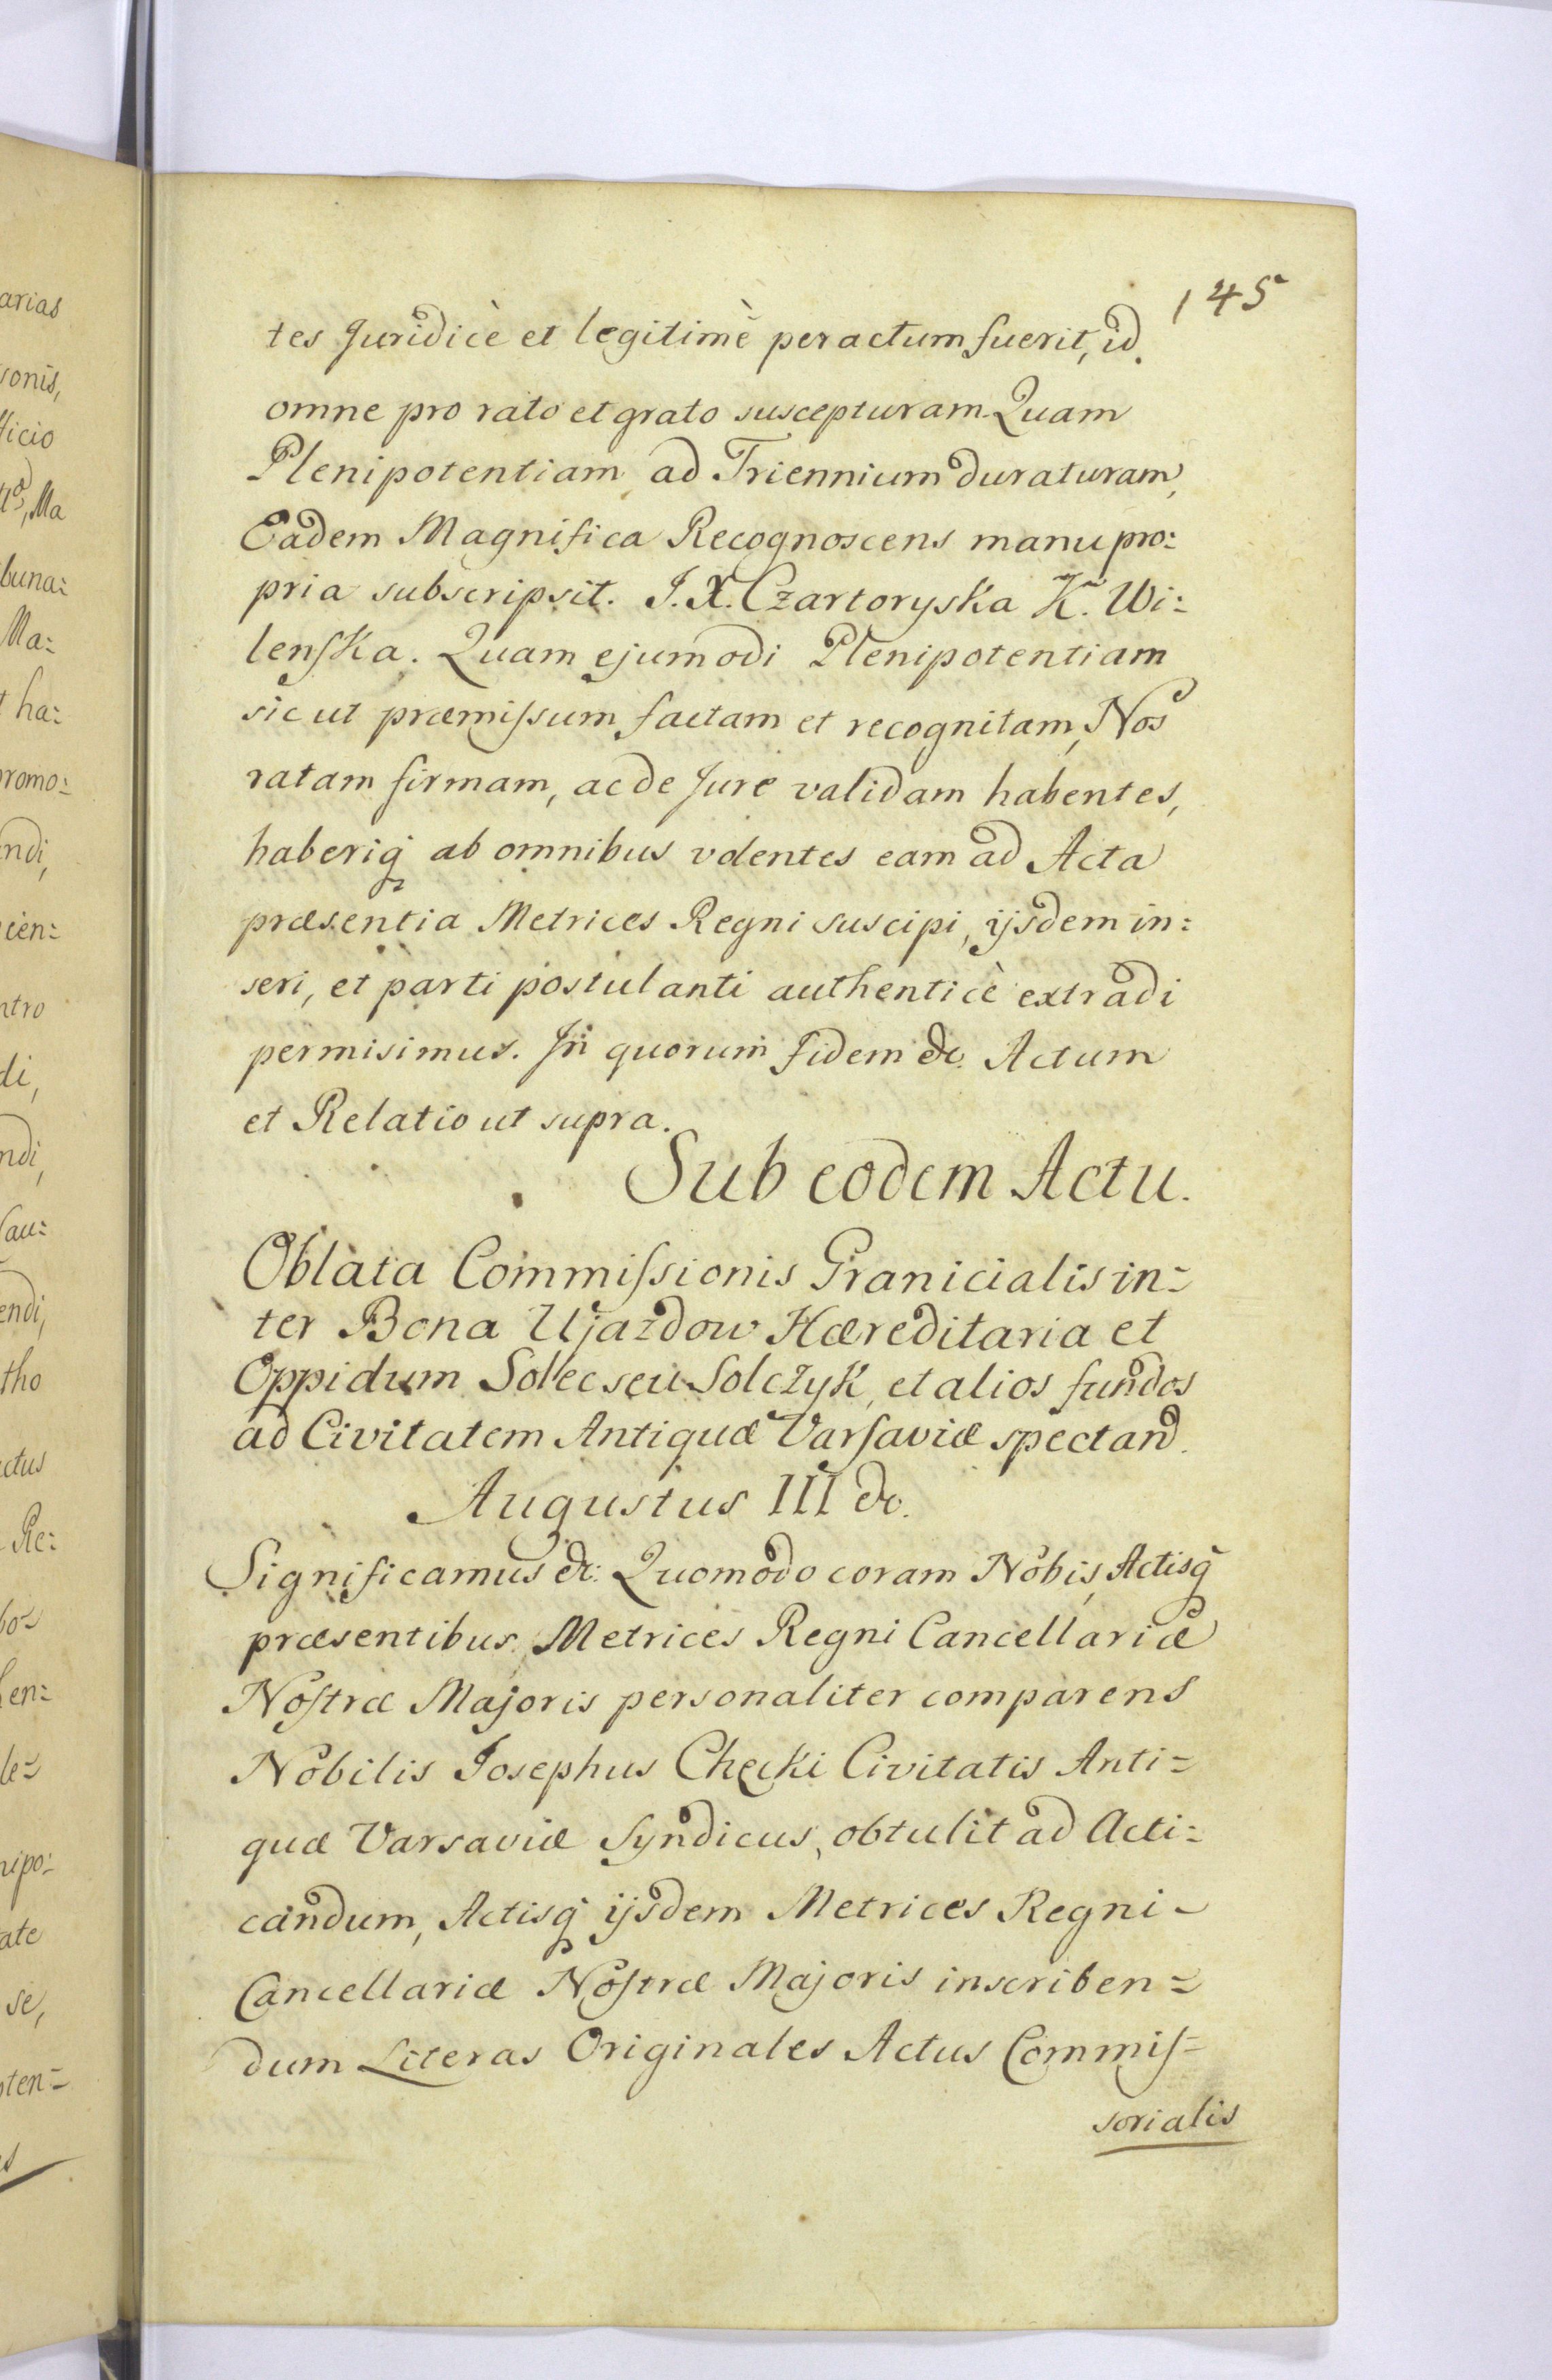 145
tes Juridicè et legitimè peractum fuerit, id
omne pro rato et grato suscepturam. Quam
Plenipotentiam ad Triennium duraturam,
Eadem Magnifica Recognoscens manu pro:
pria subscripsit. J. X. Czartoryska K. Wi:
lenſka. Quam ejumodi Plenipotentiam
sic ut præmiſsum factam et recognitam, Nos
ratam firmam, ac de Jure validam habentes,
haberiq ab omnibus volentes eam ad Acta
præsentia Metrices Regni suscipi, ijsdem in:
seri, et parti postulanti authenticè extradi
permisimus. In quorum fidem &c. Actum
et Relatio ut supra.
Sub eodem Actu.
Oblata Commiſsionis Granicialis in=
ter Bona Ujazdow Hæreditaria et
Oppidum Solec seu Solczyk, et alios fundos
ad Civitatem Antiquæ Varſaviæ spectand.
Augustus III &c.
Significamus &c: Quomodo coram Nobis, Actisq
præsentibus Metrices Regni Cancellariæ
Noſtræ Majoris personaliter comparens
Nobilis Josephus Checki Civitatis Anti=
quæ Varsaviæ Syndicus, obtulit ad Acti:
candum, Actisq ijsdem Metrices Regni -
Cancellariæ Noſtræ Majoris inscriben=
dum Literas Originales Actus Commiſ=
sorialis
arias
sonis,
ficio
Ma
buna:
Ma:
ha:
romo:
ndi,
cien:
ntro
di,
ndi,
endi,
tho
ctus
Re:
en:
le=
nipo:
ate
se,
ten=